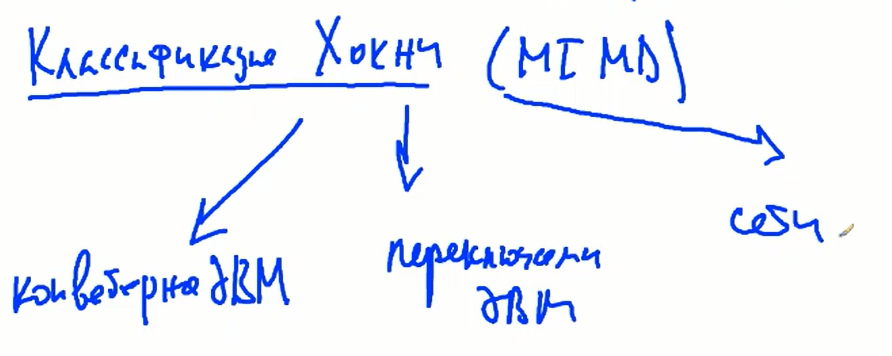 Классификация Хокни (MIMD)
конвеерна ЭВМ
переключаеми
ЭВМ
сети